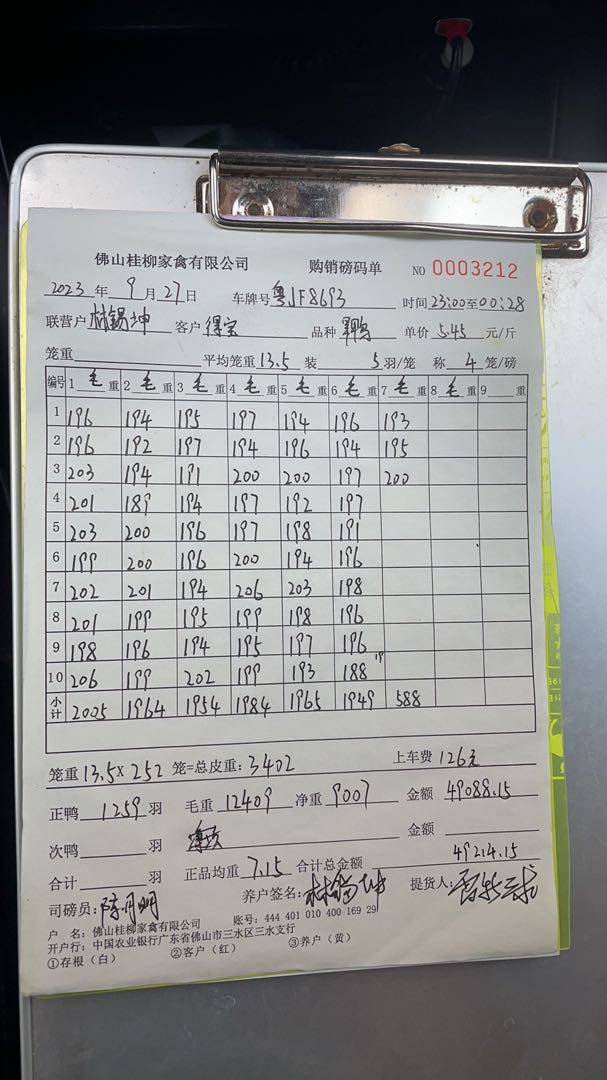 佛山桂柳家禽有限公司 购销磅码单 NO 0003212
2023 年 9 月 27 日 车牌号 粤JF8693 时间 23:00 至 00:28
联营户 林锡坤 客户 得宝 品种 单价 5.45 元/斤
笼重 平均笼重 13.5 装 5 羽/笼 称 4 笼/磅
编号 1 毛 重 2 毛 重 3 毛 重 4 毛 重 5 毛 重 6 毛 重 7 毛 重 8 毛 重 9 重
1 196 194 195 197 194 196 193
2 196 192 197 194 196 194 195
3 203 194 191 200 200 197 200
4 201 189 194 197 192 197
5 203 200 196 197 198 191
6 199 200 196 200 194 196
7 202 201 194 206 203 198
8 201 199 195 199 198 196
9 198 196 194 195 197 196
10 206 199 202 199 193 188
小计 2005 1964 1954 1984 1965 1949 588
笼重 13.5 × 252 笼=总皮重: 3402 上车费 126元
正鸭 1259 羽 毛重 12409 净重 9007 金额 49088.15
次鸭 羽 金额
合计 羽 正品均重 7.15 合计总金额 49214.15
司磅员: 陈月明 养户签名: 林锡坤 提货人:
户 名: 佛山桂柳家禽有限公司 账号: 444 401 010 400 169 29
开户行: 中国农业银行广东省佛山市三水区三水支行
①存根（白） ②客户（红） ③养户（黄）